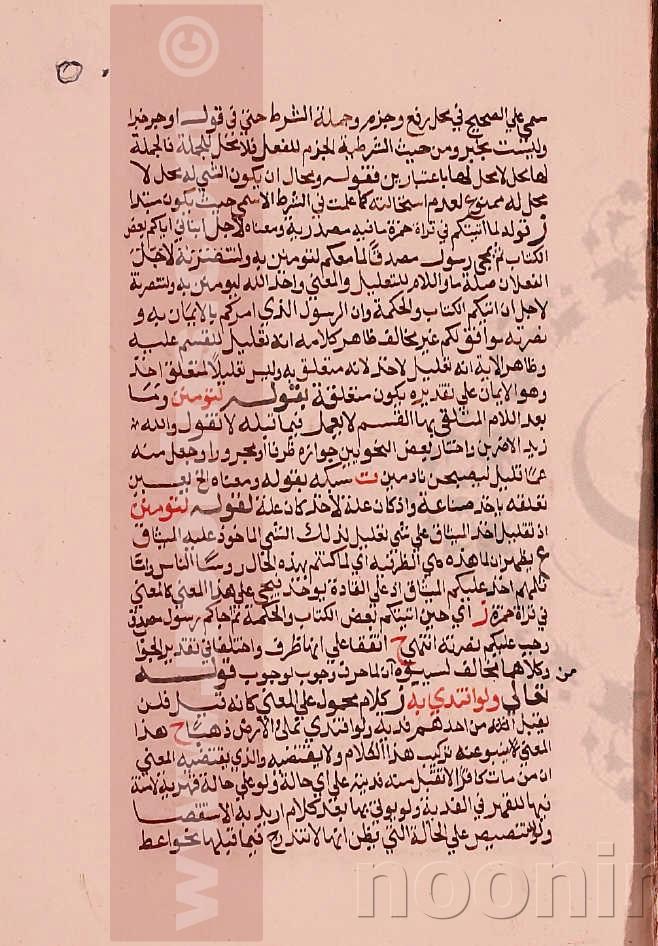 سمي علي الصحيح في محل رفع وجزم وجملة الشرط حتي في قوله او جر خبرا
وليست بخبر ومن حيث الشرطية الجزم للفعل فلا محل للجملة فالجملة
لها محل لا محل لها باعتبارين فقوله ومحال ان يكون الشي له محل لا
محل له ممنوع لعدم استحالته كما علمت في الشرط الاسمي حيث يكون مبتدا
ز قوله لما اتيتكم في قراة حمزة ما فيه مصدرية ومعناه لاجل ايتاي اياكم بعض
الكتاب ثم لمجي رسول مصدقا لما معكم لتومنن به ولتنصرنه لاجل
الفعلان صلة ما واللام للتعليل والمعني واخذ الله ليومنن به ولتنصرنه
لاجل ان اتيتكم الكتاب والحكمة وان الرسول الذي امركم بالايمان به و
نصرته موافق لكم غير مخالف ظاهر كلامه انه تعليل للقسم عليه
وظاهر الاية انه تعليل لاخذ لانه متعلق به وليس تعليلا لمتعلق اخذ
وهو الايمان علي تقديره يكون متعلقة بقوله لتومنن وما
بعد اللام المتلقي بها القسم لا يعمل فيما قبله لا تقول والله
زيد لاضربن واختار بعض النحويين جوازه ظرفا او مجرورا وجعل منه
عما قليل ليصبحن نادمين ت سبكه بقوله ومعناه الخ يعين
تعلقه باخذ صناعة واذ كان علة لاخذ كان علة لقوله لتومنن
اذ تعليل اخذ الميثاق علي شي تعليل لذلك الشي الماخوذ عليه الميثاق
ع يظهر ان لما هذه هي الظرفية اي لما كنتم بهذه الحال روسا الناس واما
ثلهم اخذ عليكم الميثاق اذ علي القادة يوخذ فيجي علي هذا المعني كالمعني
في قراة حمزة ز اي حين اتيتكم بعض الكتاب والحكمة ثم جاكم رسول مصدق
وجب عليكم نصرته انتهي ح اتفقا علي انها ظرف واختلفا في تقدير الجوا
من وكلاهما مخالف لسيبويه ان لما حرف وجوب لوجوب قوله
تعالي ولو افتدي به ز كلام محمول علي المعني كانه قيل فلن
يقبل من احدهم فدية ولو افتدي بملئ الارض ذهبا ح هذا
المعني لا ينبو عنه تركيب هذا الكلام ولا يقتضيه والذي يقتضيه المعني
ان من مات كافرا لا تقبل منه فدية علي اي حالة ولو علي حالة
فيها للقهر في الفدية ولو يوتي بها بعد كلام اريد به الاستقصا
والتنصيص علي الحالة التي يظن انها لا تندرج فيما قبلها نحو اعط